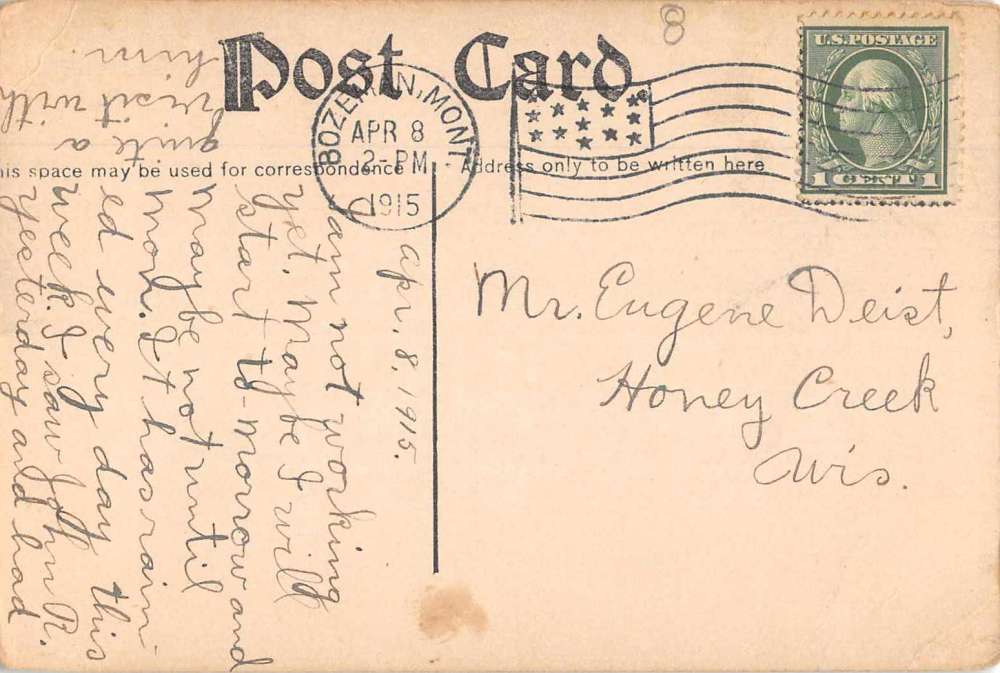 Post Card
8
U.S. POSTAGE
1 CENT 1
BOZEMAN, MONT.
APR 8
2-PM
1915
his space may be used for correspondence
Address only to be written here
Mr. Eugene Deist,
Honey Creek
Wis.
Apr. 8, 1915.
am not working
yet. Maybe I will
start to-morrow and
maybe not until
Mon. It has rain-
ed every day this
week. I saw John R.
yesterday and had
quite a
visit with
him.